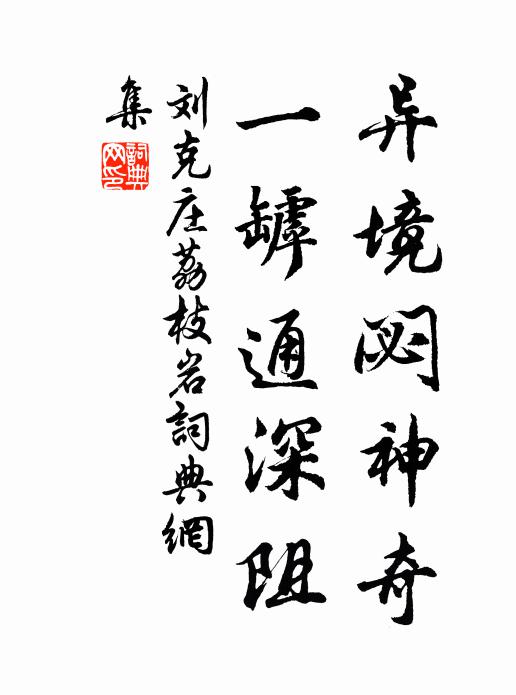 异境閟神奇
一罅通深阻
刘克庄荔枝岩詞典網
集
詞典網印